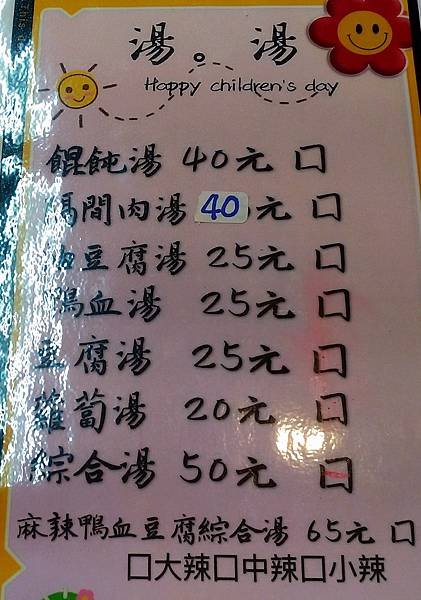 湯。湯
Happy children's day
餛飩湯 40元 口
間肉湯 40元 口
豆腐湯 25元 口
鴨血湯 25元 口
豆腐湯 25元 口
蘿蔔湯 20元 口
綜合湯 50元 口
麻辣鴨血豆腐綜合湯 65元 口
口大辣口中辣口小辣